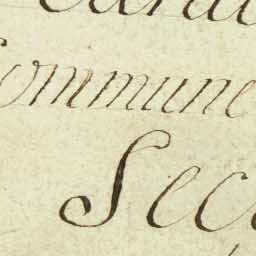 Commune
Sec